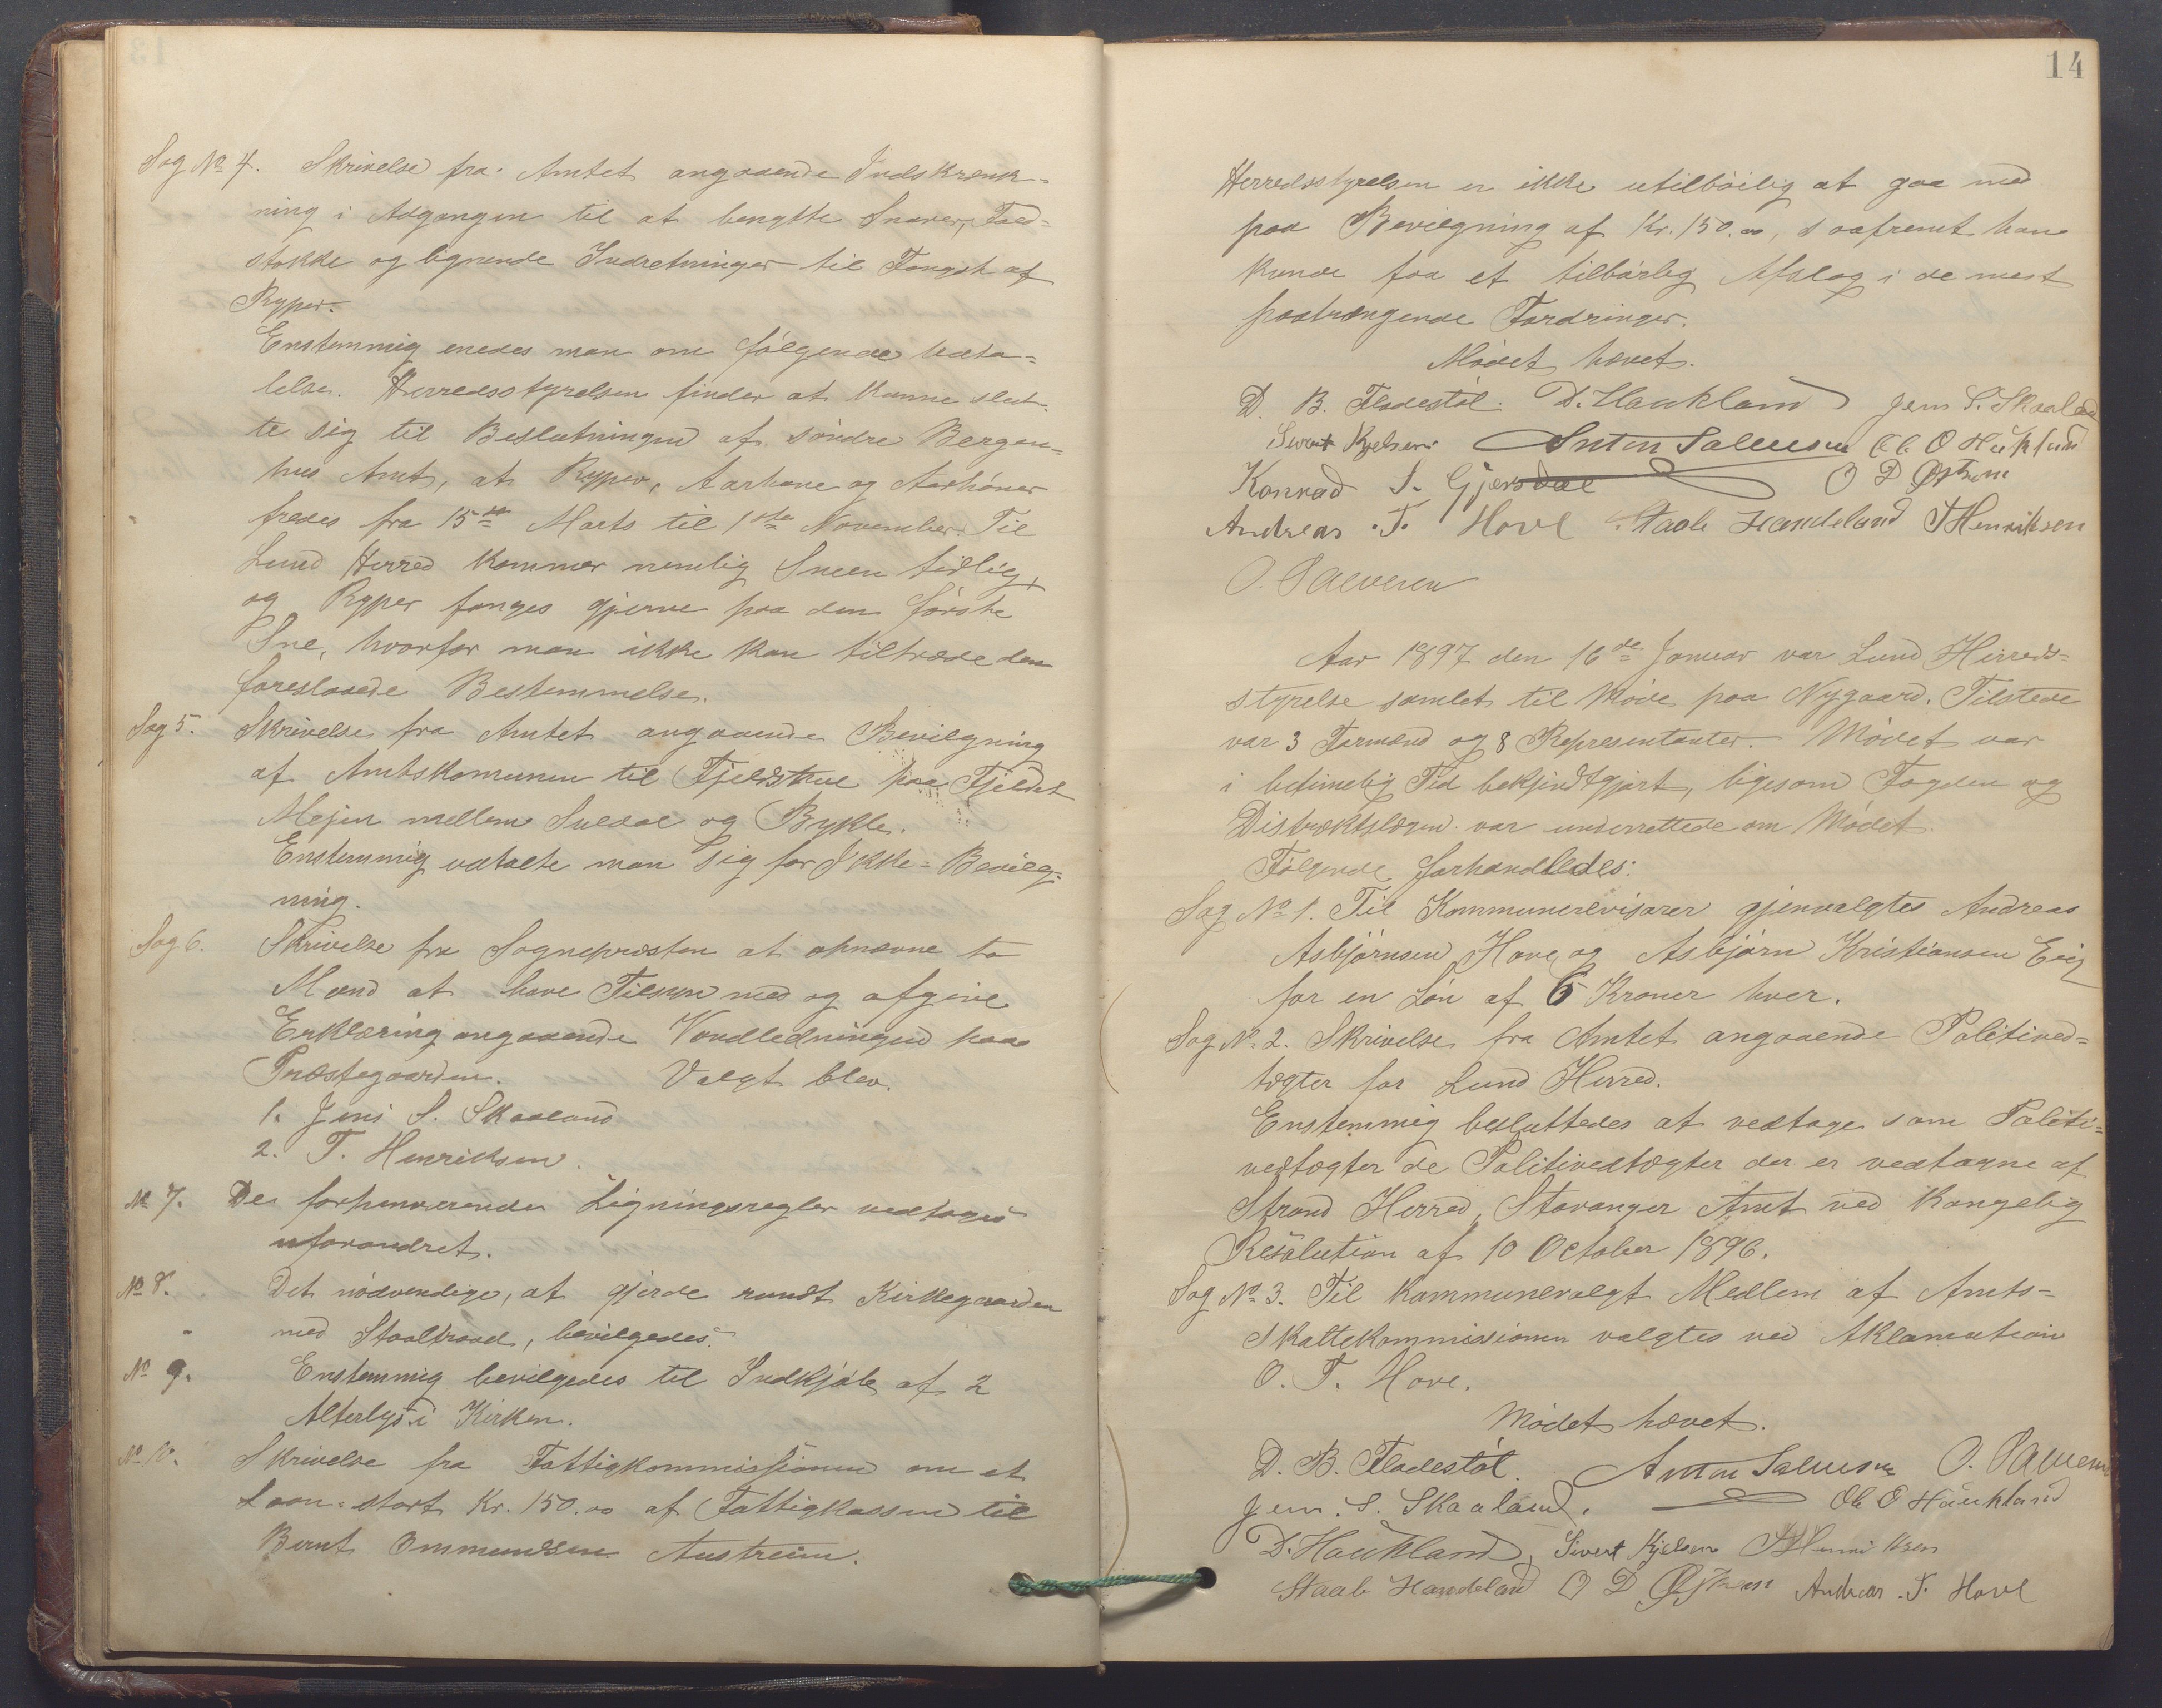 Sag No 4. Skrivelse fra Amtet angaaende Indskrænk-
ning i Adgangen til at benytte Snarer, Fald-
stokke og lignende Indretninger til Fangst af
Ryper.
Enstemmig enedes man om følgende Udta-
lelse. Herredsstyrelsen finder at kunne slut-
te sig til Beslutningen af søndre Bergen-
hus Amt, at Ryper, Aarhane og Aarhøner
fredes fra 15de Marts til 1ste November. Til
Lund Herred kommer nemlig Sneen tidlig,
og Ryper fanges gjerne paa den første
Sne, hvorfor man ikke kan tiltræde den
foreslaaede Bestemmelse.
Sag 5. Skrivelse fra Amtet angaaende Bevilgning
af Amtskomunen til Fjeldstue paa Fjeldet
Mejen mellem Suldal og Bykle.
Enstemmig udtalte man sig for Ikke-Bevilg-
ning.
Sag 6. Skrivelse fra Sognepræsten at opnævne to
Mænd at have Tilsyn med og afgive
Erklæring angaaende Vandledningen paa
Præstegaarden. Valgt blev.
1. Jens S. Skaaland
2. T. Henriksen.
No 7. De forhenværende Ligningsregler vedtoges
uforandret.
No 8. Det nødvendige, at gjerde rundt Kirkegaarden
med Staaltraad, bevilgedes.
No 9. Enstemmig bevilgedes til Indkjøb af 2
Alterlys i Kirken.
No 10. Skrivelse fra Fattigkommissionen om et
Laan stort Kr. 150.00 af Fattigkassen til
Bernt Ommundsen Austreim.
14
Herredsstyrelsen er ikke utilbøilig at gaa med
paa Bevilgning af Kr. 150.00, saafremt han
kunde faa et tilbørlig Afslag i de mest
paatrængende Fordringer.
Mødet hævet.
D. B. Fladestøl. D. Haukland Jens S. Skaaland
Sivert Kjelsen Anton Salvesen Ole O Haukland
Konrad S. Gjersdal O D Østrem
Andreas T. Hove Staale Handeland T Henriksen
O. Salvesen
Aar 1897 den 16de Januar var Lund Herreds-
styrelse samlet til Møde paa Nygaard. Tilstede
var 3 Formænd og 8 Representanter. Mødet var
i betimelig Tid bekjendtgjort, ligesom Fogden og
Distriktslægen var underrettede om Mødet.
Følgende forhandledes:
Sag No 1. Til Kommunerevisorer gjenvalgtes Andreas
Asbjørnsen Hove og Asbjørn Kristiansen Eig
for en Løn af 6 Kroner hver.
Sag No 2. Skrivelse fra Amtet angaaende Politived-
tægter for Lund Herred.
Enstemmig besluttedes at vedtage som Politi-
vedtægter de Politivedtægter der er vedtagne af
Strand Herred, Stavanger Amt ved Kongelig
Resolution af 10 October 1896.
Sag No 3. Til kommunevalgt Medlem af Amts-
skattekommissionen valgtes ved Aklamation
O. T. Hove.
Mødet hævet.
D. B. Fladestøl. Anton Salvesen O. Salvesen
Jens. S. Skaaland. Ole O Haukland
D. Haukland, Sivert Kjelsen T Henriksen
Staale Handeland O D Østrem Andreas. T. Hove